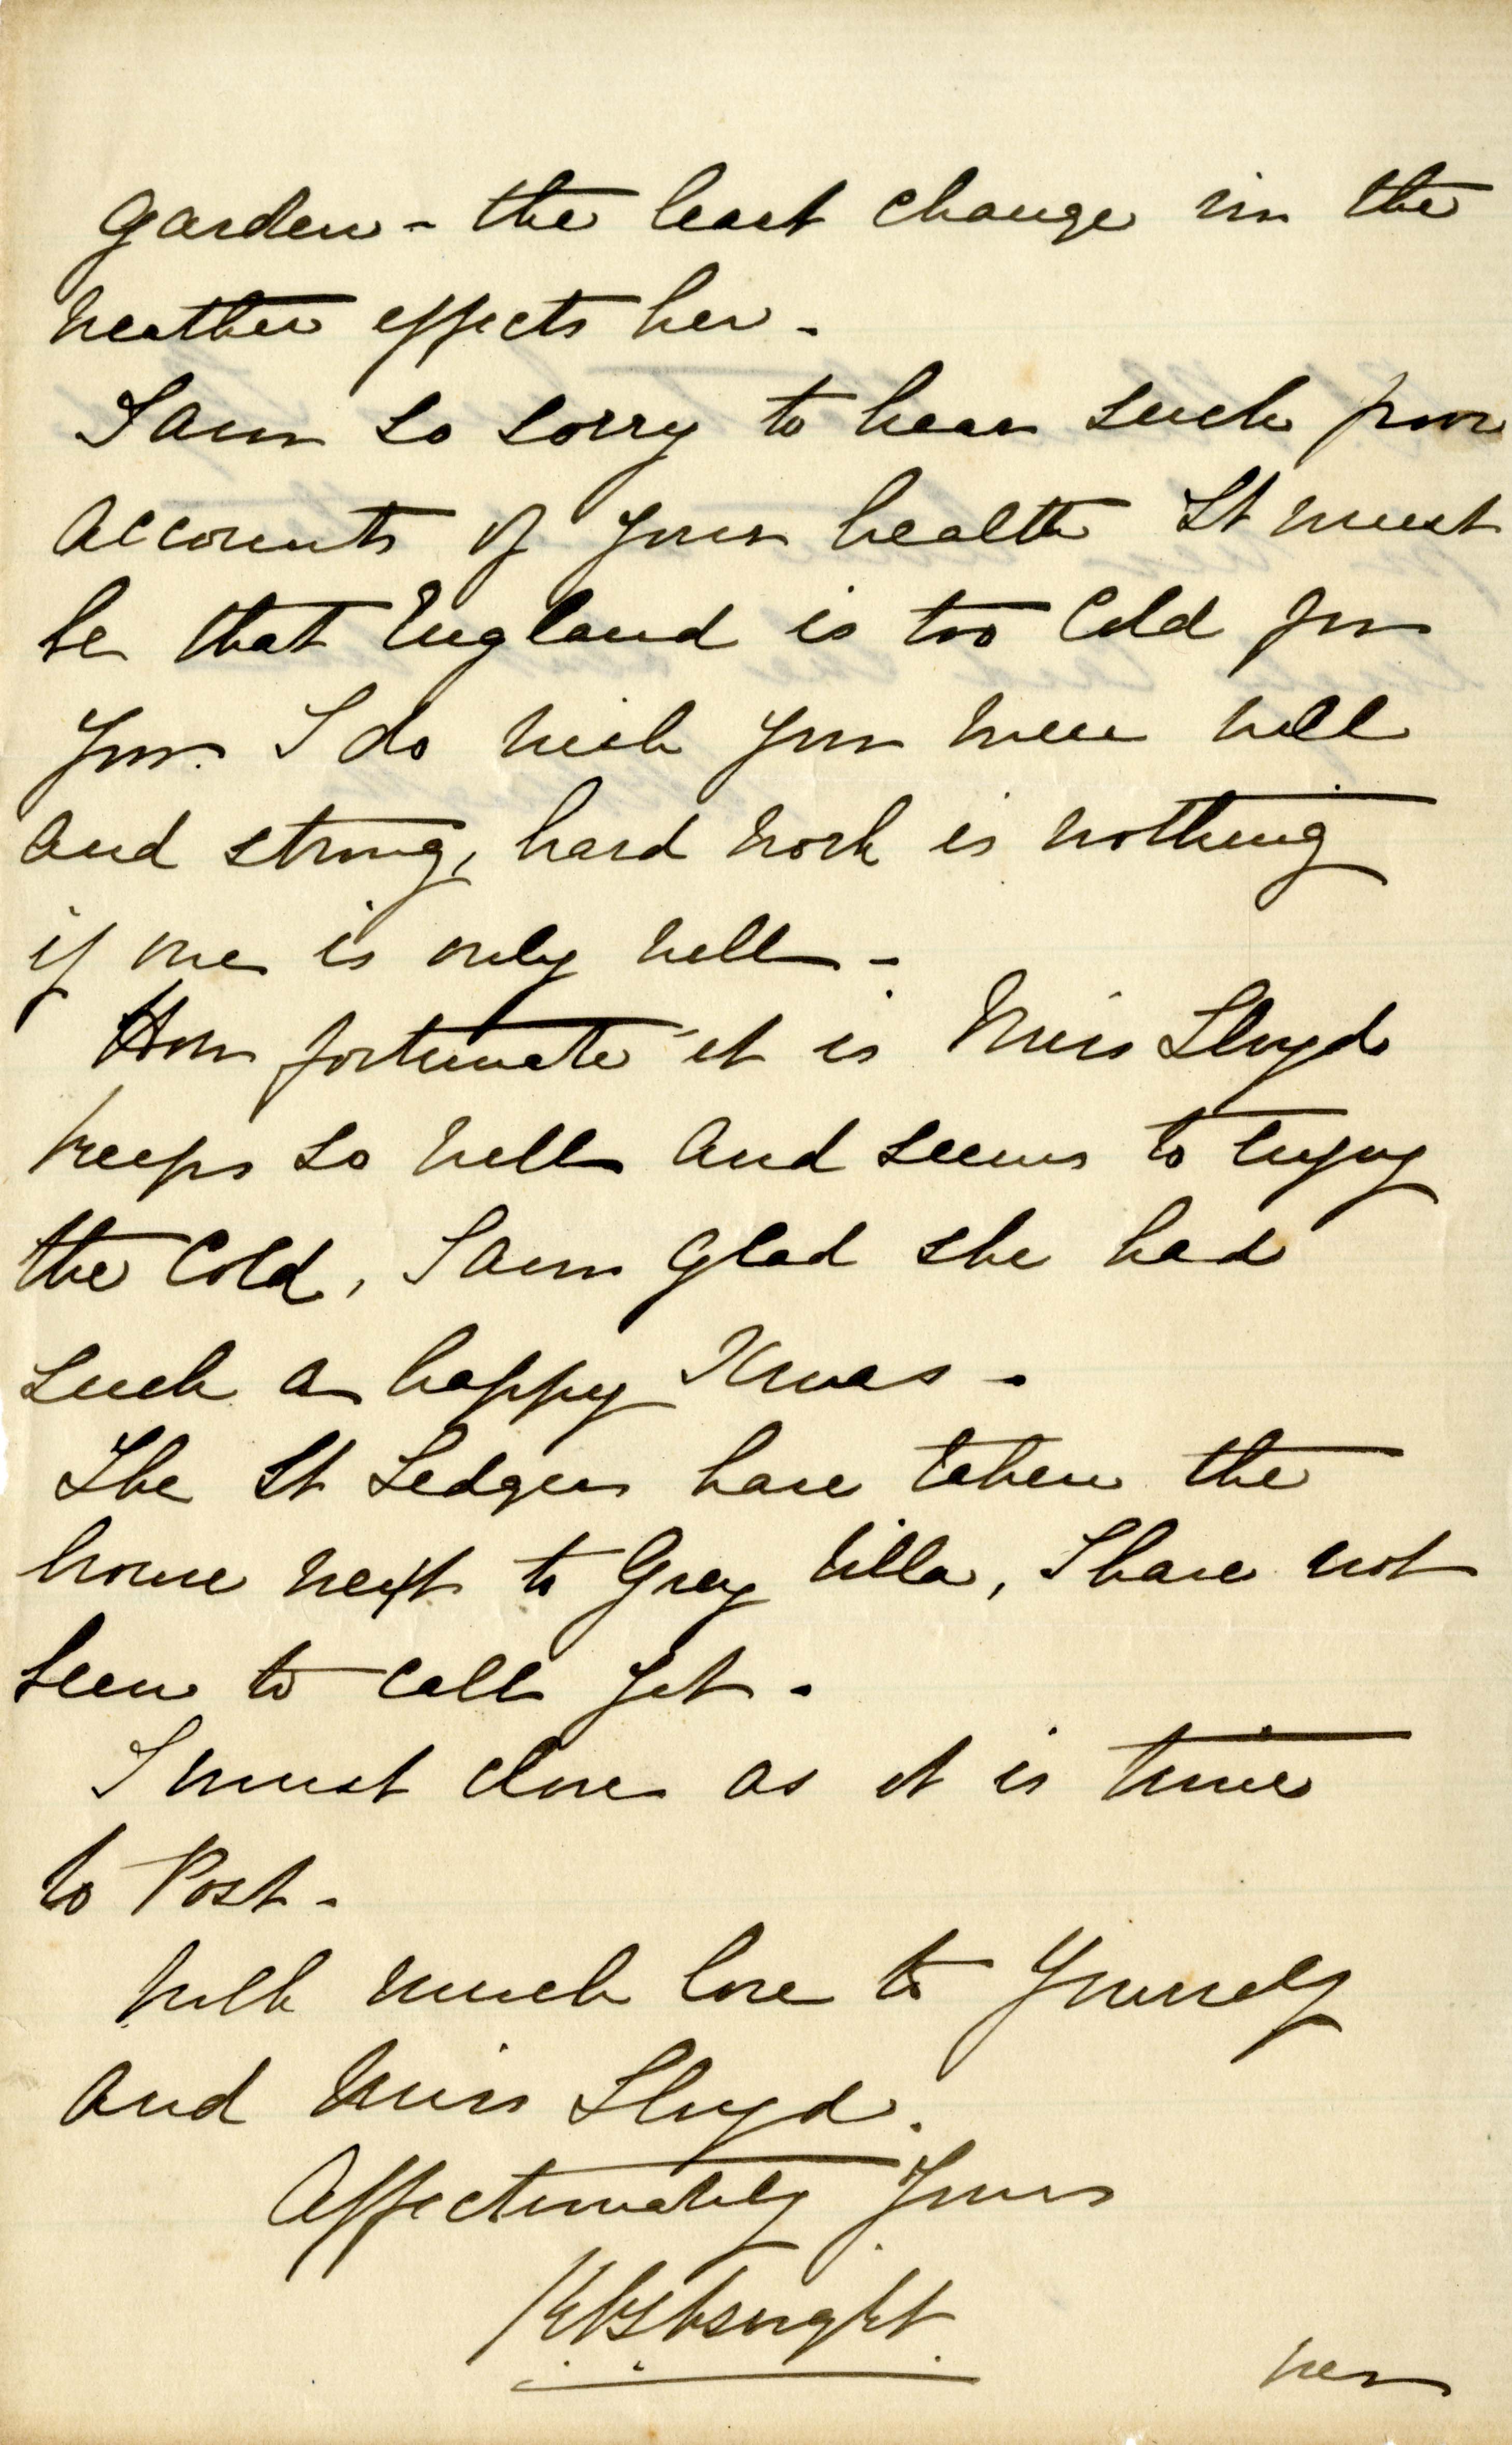 garden - the least change in the
weather effects her -
I am so sorry to hear such poor
accounts of your health It must
be that England is too cold for
you. I do wish you were well
and strong, hard work is nothing
if one is only well -
How fortunate it is Miss Lloyd
keeps so well and seems to enjoy
the cold, I am glad she had
such a happy Xmas -
The St Ledgers have taken the
house next to Grey Villa, I have not
been to call yet -
I must close as it is time
to Post -
With much love to yourself
and Miss Lloyd.
Affectionately yours